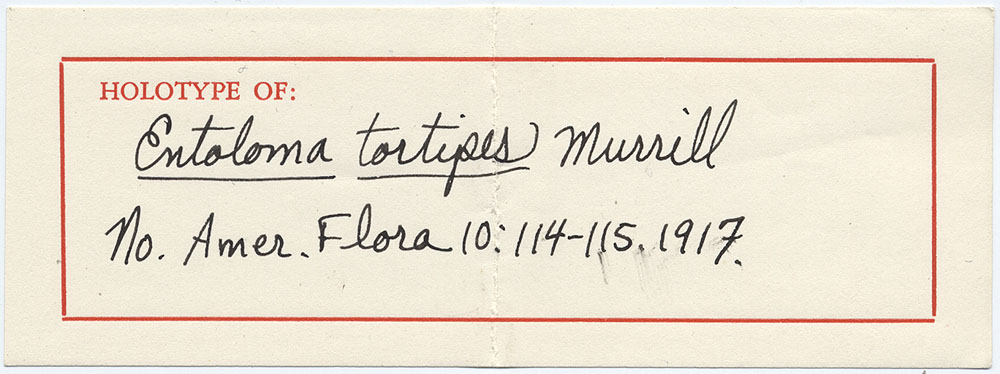 HOLOTYPE OF:
Entoloma tortipes Murrill
No. Amer. Flora 10: 114-115. 1917.